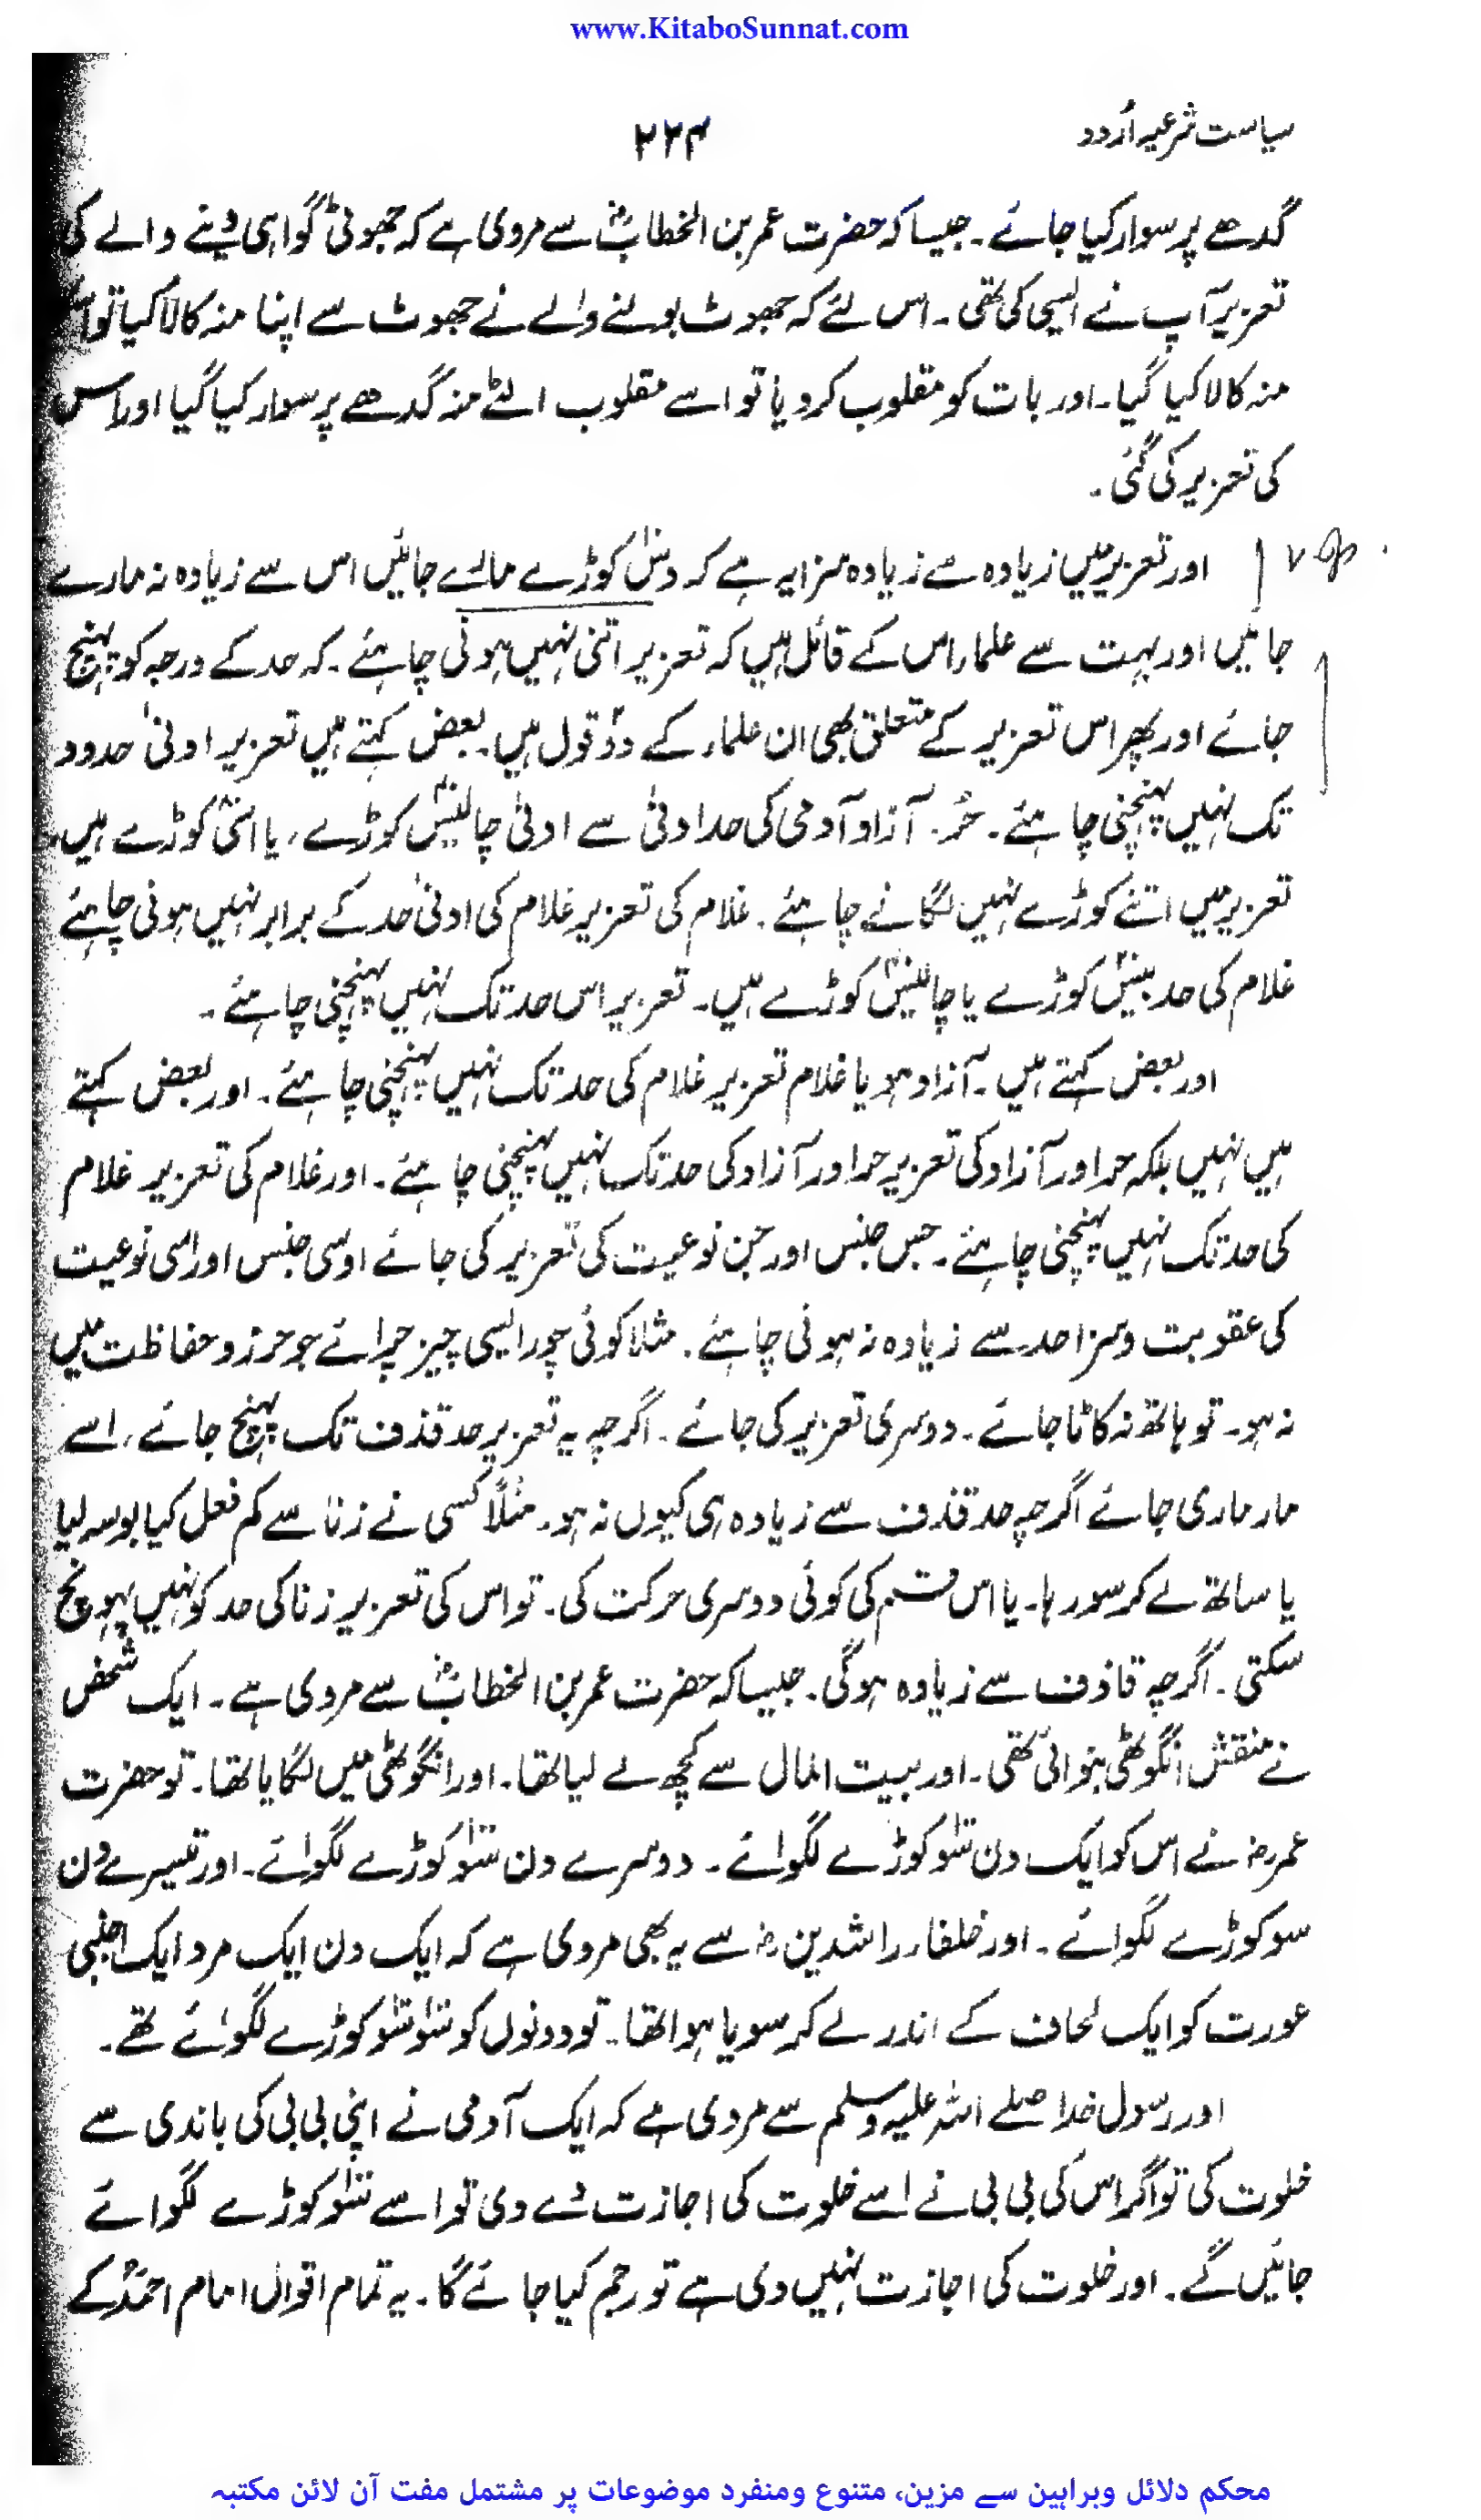 www.KitaboSunnat.com
سیاست شرعیہ اُردو
۲۲۴
گدھے پر سوار کیا جائے۔ جیسا کہ حضرت عمر بن الخطابؓ سے مروی ہے کہ جھوٹی گواہی دینے والے کی
تعزیر آپ نے ایسی کی تھی۔ اس لئے کہ جھوٹ بولنے والے نے جھوٹ سے اپنا منہ کالا کیا تو
منہ کالا کیا گیا۔ اور بات کو مقلوب کر دیا تو اسے مقلوب الٹے منہ گدھے پر سوار کیا گیا اور اس
کی تعزیر کی گئی۔
اور تعزیر میں زیادہ سے زیادہ سزا یہ ہے کہ دس کوڑے مارے جائیں اس سے زیادہ نہ مارے
جائیں اور بہت سے علماء اس کے قائل ہیں کہ تعزیر اتنی نہیں ہونی چاہئے۔ کہ حد کے درجہ کو پہنچ
جائے اور پھر اس تعزیر کے متعلق بھی ان علماء کے دو قول ہیں۔ بعض کہتے ہیں تعزیر ادنیٰ حدود
تک نہیں پہنچنی چاہئے۔ حُر۔ آزاد آدمی کی حد ادنیٰ سے ادنیٰ چالیس کوڑے، یا اسّی کوڑے ہیں،
تعزیر میں اتنے کوڑے نہیں لگانے چاہئے۔ غلام کی تعزیر غلام کی ادنیٰ حد کے برابر نہیں ہونی چاہئے
غلام کی حد بیس کوڑے یا چالیس کوڑے ہیں۔ تعزیر اس حد تک نہیں پہنچنی چاہئے۔
اور بعض کہتے ہیں۔ آزاد ہو یا غلام تعزیر غلام کی حد تک نہیں پہنچنی چاہئے۔ اور بعض کہتے
ہیں نہیں بلکہ حر اور آزاد کی تعزیر حر اور آزاد کی حد تک نہیں پہنچنی چاہئے۔ اور غلام کی تعزیر غلام
کی حد تک نہیں پہنچنی چاہئے۔ جس جنس اور جن نوعیت کی تعزیر کی جائے اوسی جنس اور اسی نوعیت
کی عقوبت و سزا حد سے زیادہ نہ ہونی چاہئے۔ مثلا کوئی چور ایسی چیز چرائے جو حرز و حفاظت میں
نہ ہو۔ تو ہاتھ نہ کاٹا جائے۔ دوسری تعزیر کی جائے۔ اگرچہ یہ تعزیر حد قذف تک پہنچ جائے، اسے
مار ماری جائے اگرچہ حد قذف سے زیادہ ہی کیوں نہ ہو۔ مثلاً کسی نے زنا سے کم فعل کیا بوسہ لیا
یا ساتھ لے کر سو رہا۔ یا اس قسم کی کوئی دوسری حرکت کی۔ تو اس کی تعزیر زنا کی حد کو نہیں پہونچ
سکتی۔ اگرچہ قاذف سے زیادہ ہوگی۔ جیسا کہ حضرت عمر بن الخطابؓ سے مروی ہے۔ ایک شخص
نے منقش انگوٹھی بنوائی تھی۔ اور بیت المال سے کچھ لے لیا تھا۔ اور انگوٹھی میں لگایا تھا۔ تو حضرت
عمررضہ نے اس کو ایک دن سو کوڑے لگوائے۔ دوسرے دن سو کوڑے لگوائے۔ اور تیسرے دن
سو کوڑے لگوائے۔ اور خلفاء راشدین رضہ سے یہ بھی مروی ہے کہ ایک دن ایک مرد ایک اجنبی
عورت کو ایک لحاف کے اندر لے کر سویا ہوا تھا۔ تو دونوں کو سو سو کوڑے لگوائے تھے۔
اور رسول خدا صلے اللہ علیہ وسلم سے مروی ہے کہ ایک آدمی نے اپنی بی بی کی باندی سے
خلوت کی تو اگر اس کی بی بی نے اسے خلوت کی اجازت دے دی تو اسے سو کوڑے لگوائے
جائیں گے۔ اور خلوت کی اجازت نہیں دی ہے تو رجم کیا جائے گا۔ یہ تمام اقوال امام احمدؒ کے
محکم دلائل وبراہین سے مزین، متنوع ومنفرد موضوعات پر مشتمل مفت آن لائن مکتبہ